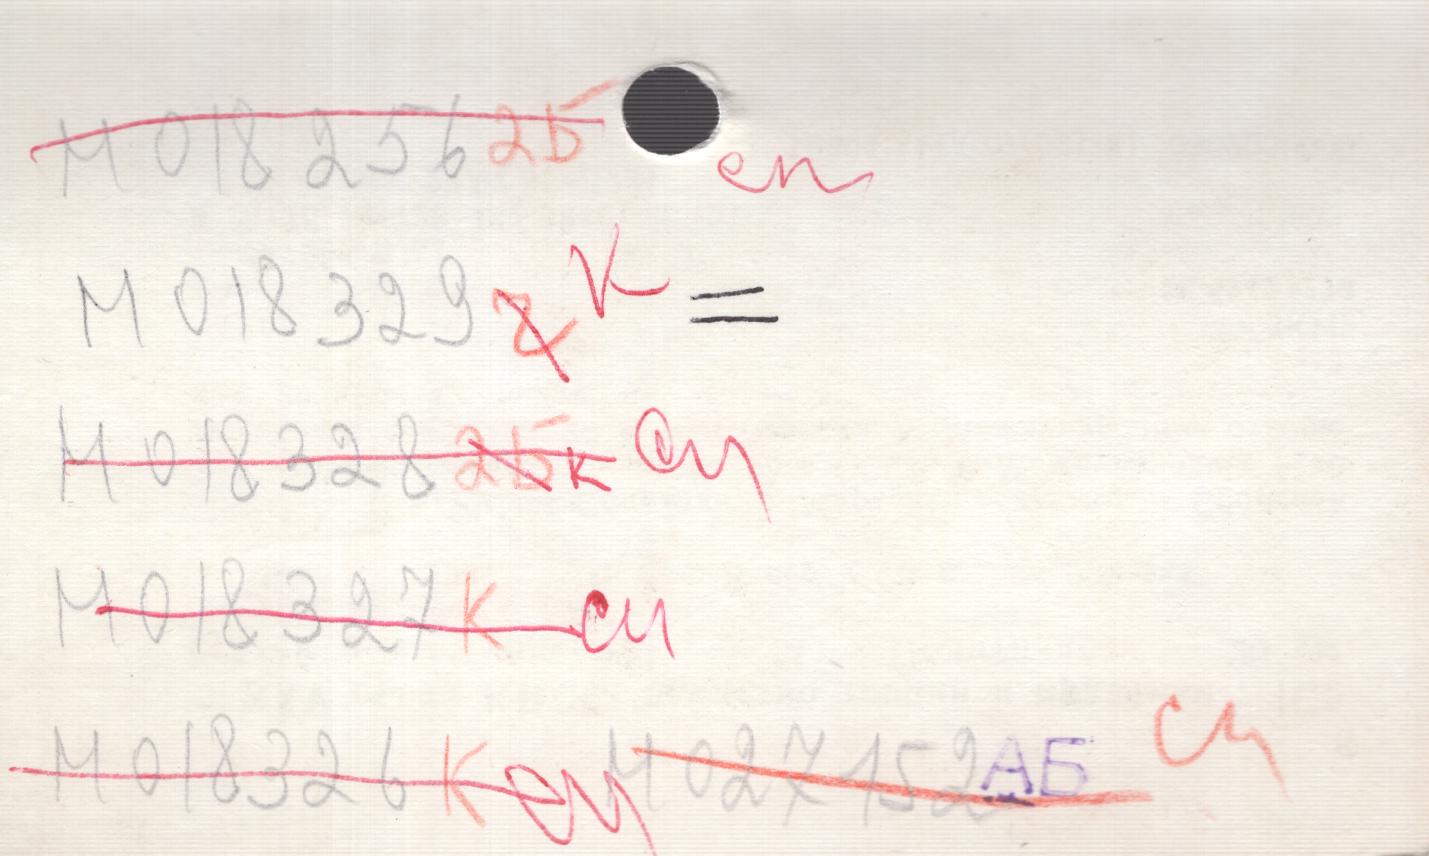 М 018256 2Б сп
М 018329 2 К =
М 018328 2Б к сп
М 018327 К сп
М 018326 К сп М 027152 АБ сп